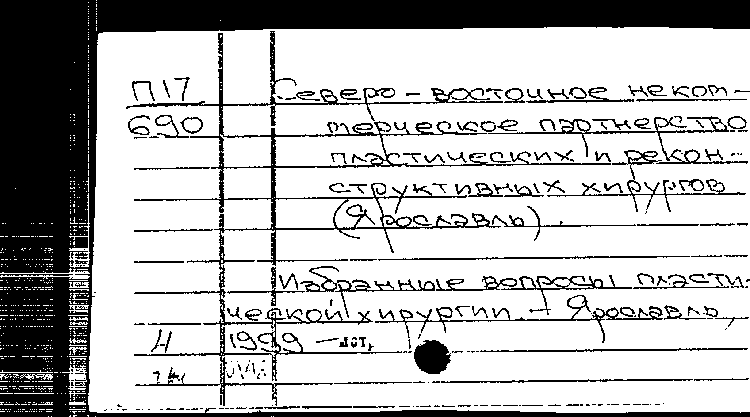 П17 Северо-восточное неком-
690 мерческое партнерство
пластических и рекон-
структивных хирургов
(Ярославль).
Избранные вопросы пласти-
ческой хирургии. - Ярославль,
Н 1999 -